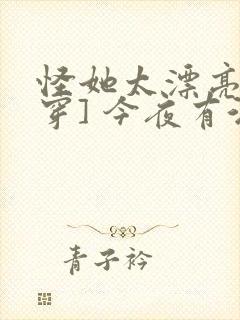 怪她太漂亮
穿]今夜有
青子衿